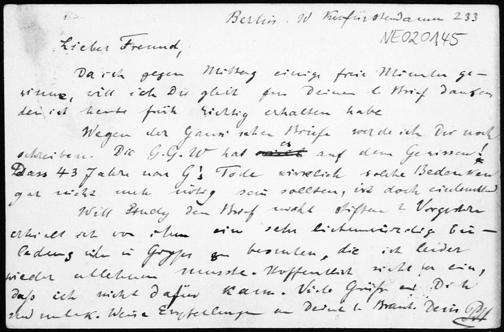 Berlin. W Kurfürstendamm 233
NE020145
Lieber Freund,
Da ich gegen Mittag einige freie Minuten ge-
winne, will ich Dir gleich für Deinen l. Brief danken,
den ich heute früh richtig erhalten habe
Wegen der Gaussischen Briefe werde ich Dir noch
schreiben. Die G.G.W hat es auf dem Gewissen!
Dass 43 Jahre nach G's Tode wirklich solche Bedenken
gar nicht mehr nötig sein sollten, ist doch einleuchtend
Will Study den Brief nicht stiften? Vorgestern
erhielt ich von ihm ein sehr liebenswürdige Ein-
ladung ihn in zu besuchen, die ich leider
wieder ablehnen musste. Hoffentlich sieht er ein,
daß ich nicht dafür kann. Viele Grüße an Dich
und Meine Empfehlungen an Deine l. Braut. Dein